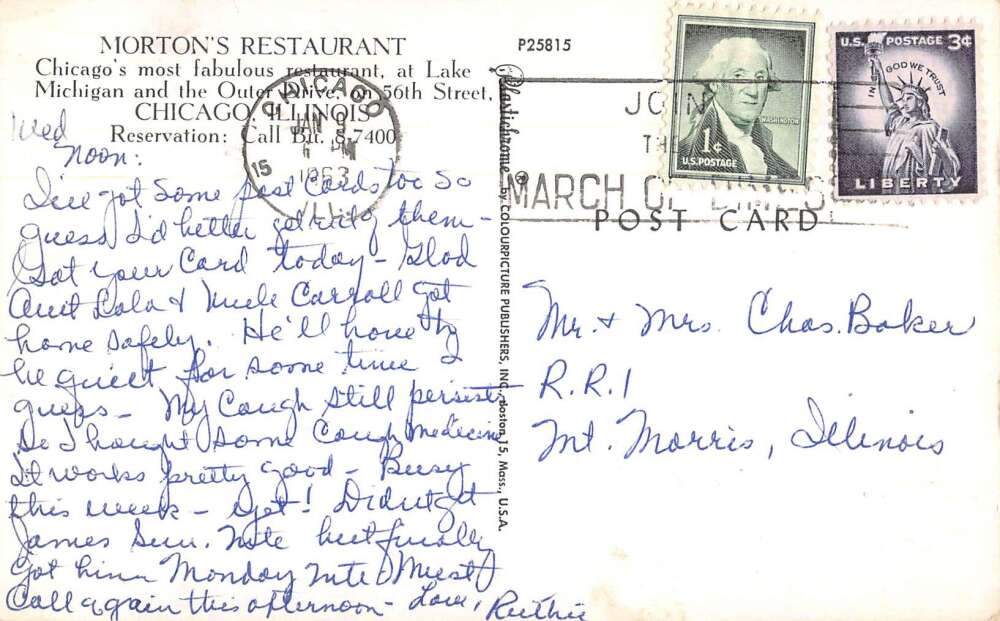 MORTON'S RESTAURANT
Chicago's most fabulous restaurant, at Lake
Michigan and the Outer Drive, on 56th Street,
CHICAGO, ILLINOIS
Reservation: Call Bu. 8-7400
P25815
Plastichrome® by COLOURPICTURE PUBLISHERS, INC., Boston 15, Mass., U.S.A.
CHICAGO
JAN
PM
1963
15
ILL
JOIN
THE
MARCH OF DIMES
WASHINGTON
1¢
U.S. POSTAGE
U.S. POSTAGE 3¢
IN GOD WE TRUST
LIBERTY
POST CARD
Wed
Noon:
I've got some post cards too so
guess I'd better get rid of them -
Got your card today - Glad
Aunt Lola & Uncle Carroll got
home safely. He'll have to
be quiet for some time I
guess - My cough still persists
So I bought some cough medicine
It works pretty good - Busy
this week - yet! Didn't get
James Sun. nite but finally
got him Monday nite. Must
Call again this afternoon - Love, Ruthie
Mr. & Mrs. Chas. Baker
R.R. 1
Mt. Morris, Illinois